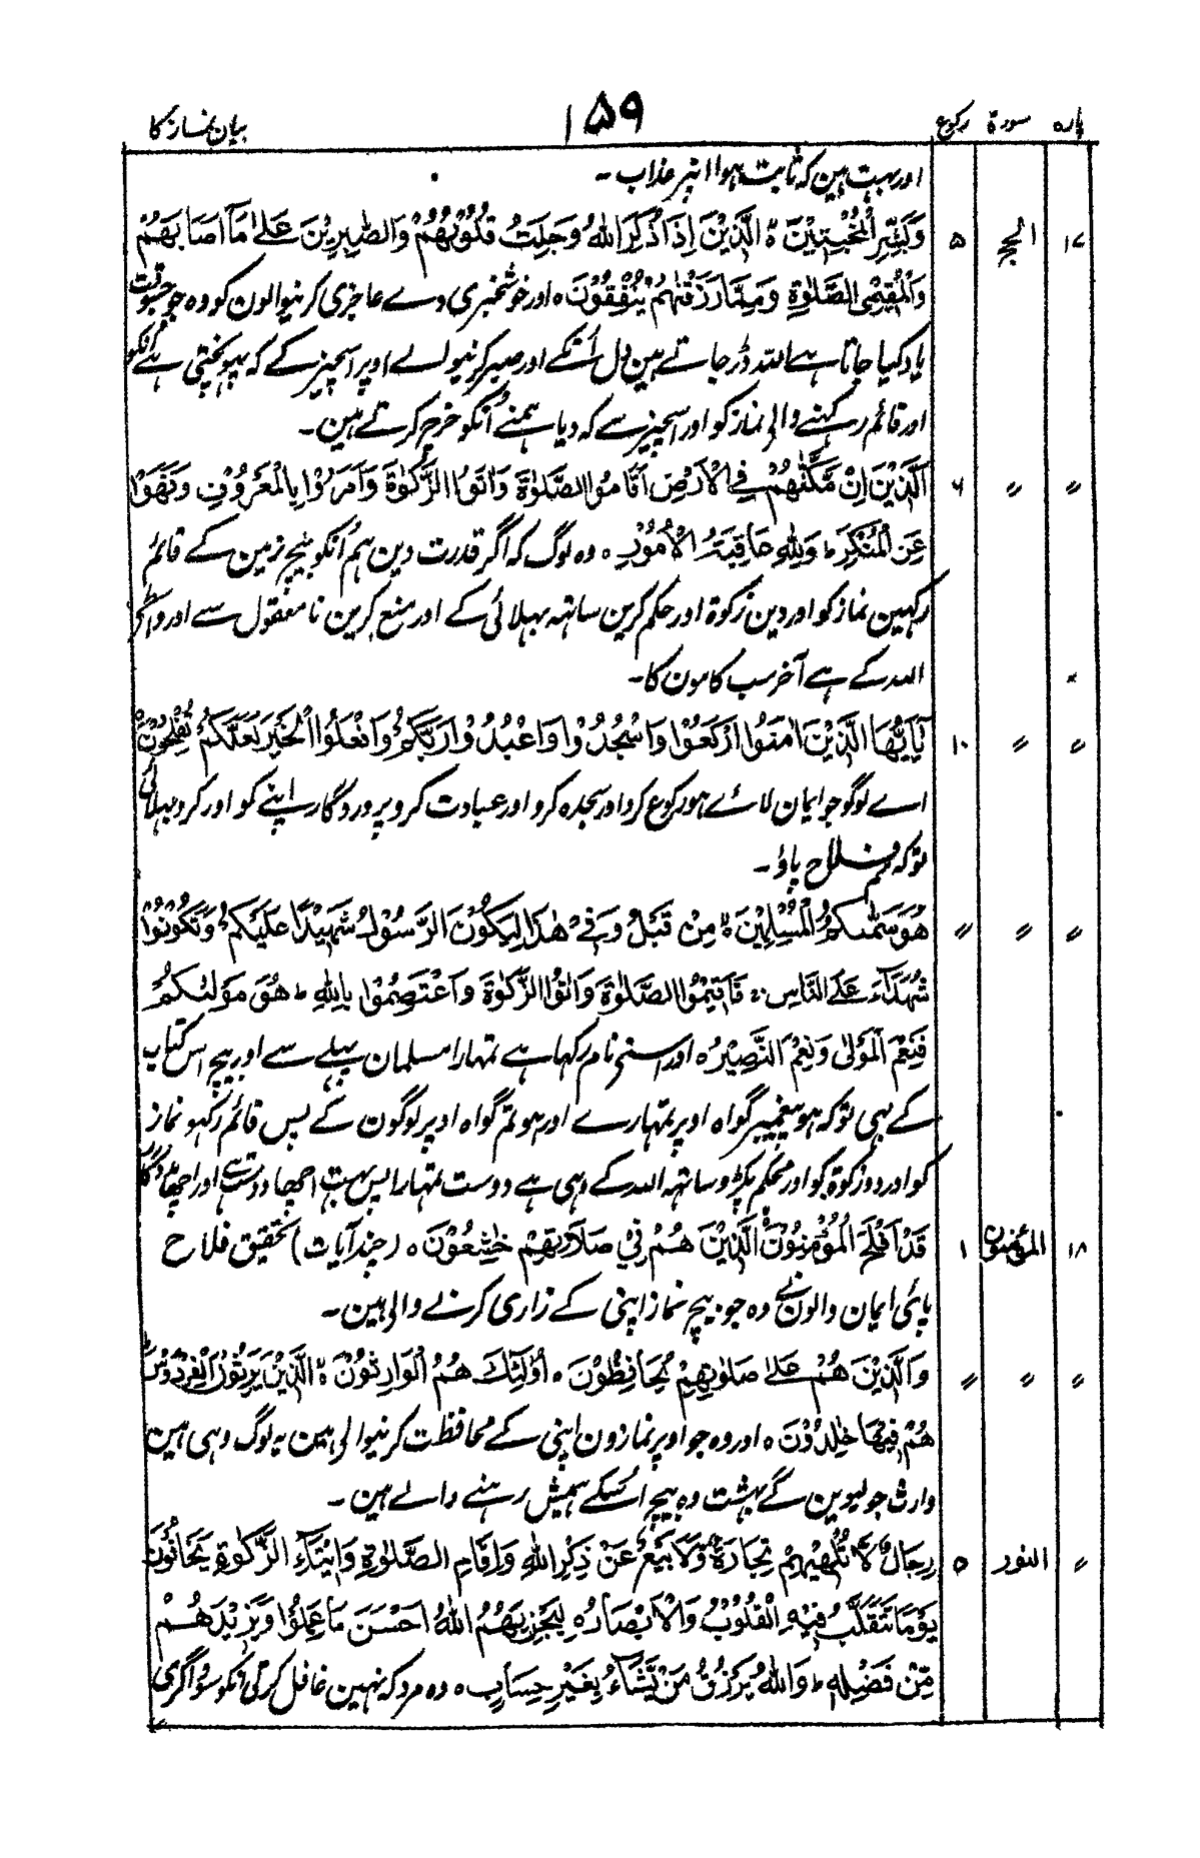 پارہ سورۃ رکوع ۱۵۹ بیان نماز کا
اور بہت ہین کہ ثابت ہوا اوپر عذاب ۔
۱۷ الحج ۵ وَبَشِّرِ الْمُخْبِتِيْنَ ۙ الَّذِيْنَ اِذَا ذُكِرَ اللّٰهُ وَجِلَتْ قُلُوْبُهُمْ وَالصّٰبِرِيْنَ عَلٰى مَآ اَصَابَهُمْ
وَالْمُقِيْمِى الصَّلٰوةِ وَمِمَّا رَزَقْنٰهُمْ يُنْفِقُوْنَ ہ اور خوشخبری دے عاجزی کرنیوالون کو وہ جو جسوقت
یاد کیا جاتا ہے اللہ ڈر جاتے ہین دل اُنکے اور صبر کرنیولے اوپر اسچیز کے کہ پہونچتی ہے اُنکو
اور قائم رکہنے والی نماز کو اور اسچیز سے کہ دیا ہمنے اُنکو خرچ کرتے ہین ۔
〃 〃 ۶ اَلَّذِيْنَ اِنْ مَّكَّنّٰهُمْ فِى الْاَرْضِ اَقَامُوا الصَّلٰوةَ وَاٰتَوُا الزَّكٰوةَ وَاَمَرُوْا بِالْمَعْرُوْفِ وَنَهَوْا
عَنِ الْمُنْكَرِ ؕ وَلِلّٰهِ عَاقِبَةُ الْاُمُوْرِ ہ وہ لوگ کہ اگر قدرت دین ہم اُنکو بیچ زمین کے قائم
رکہین نماز کو اور دین زکوۃ اور حکم کرین ساتہہ بہلائی کے اور منع کرین نامعقول سے اور واسطے
اللہ کے ہے آخر سب کامون کا ۔
〃 〃 ۱۰ يٰٓاَيُّهَا الَّذِيْنَ اٰمَنُوا ارْكَعُوْا وَاسْجُدُوْا وَاعْبُدُوْا رَبَّكُمْ وَافْعَلُوا الْخَيْرَ لَعَلَّكُمْ تُفْلِحُوْنَ
اے لوگو جو ایمان لائے ہو رکوع کرو اور سجدہ کرو اور عبادت کرو پروردگار اپنے کو اور کرو بہلائی
تو کہ تم فلاح پاؤ ۔
〃 〃 〃 هُوَ سَمّٰىكُمُ الْمُسْلِمِيْنَ ۙ مِنْ قَبْلُ وَفِيْ هٰذَا لِيَكُوْنَ الرَّسُوْلُ شَهِيْدًا عَلَيْكُمْ وَتَكُوْنُوْا
شُهَدَآءَ عَلَى النَّاسِ ۚ فَاَقِيْمُوا الصَّلٰوةَ وَاٰتُوا الزَّكٰوةَ وَاعْتَصِمُوْا بِاللّٰهِ ؕ هُوَ مَوْلٰىكُمْ
فَنِعْمَ الْمَوْلٰى وَنِعْمَ النَّصِيْرُ ہ اور اسنے نام رکہا ہے تمہارا مسلمان پہلے سے اور بیچ اس کتاب
کے بہی تو کہ ہو پیغمبر گواہ اوپر تمہارے اور ہو تم گواہ اوپر لوگون کے پس قائم رکہو نماز
کو اور دو زکوۃ کو اور محکم پکڑو ساتہہ اللہ کے وہی ہے دوست تمہارا پس بہت اچہا دوست ہے اور اچہا
۱۸ المؤمنون ۱ قَدْ اَفْلَحَ الْمُؤْمِنُوْنَ الَّذِيْنَ هُمْ فِيْ صَلَاتِهِمْ خٰشِعُوْنَ ہ (چند آیات) تحقیق فلاح
پائی ایمان والون نے وہ جو بیچ نماز اپنی کے زاری کرنے والی ہین ۔
〃 〃 〃 وَالَّذِيْنَ هُمْ عَلٰى صَلٰوتِهِمْ يُحَافِظُوْنَ ہ اُولٰٓئِكَ هُمُ الْوَارِثُوْنَ ۙ الَّذِيْنَ يَرِثُوْنَ الْفِرْدَوْسَ
هُمْ فِيْهَا خٰلِدُوْنَ ہ اور وہ جو اوپر نمازون اپنی کے محافظت کرنیوالی ہین یہ لوگ وہی ہین
وارث جو لیوین گے بہشت وہ بیچ اُسکے ہمیش رہنے والے ہین ۔
〃 النور ۵ رِجَالٌ لَّا تُلْهِيْهِمْ تِجَارَةٌ وَّلَا بَيْعٌ عَنْ ذِكْرِ اللّٰهِ وَاِقَامِ الصَّلٰوةِ وَاِيْتَآءِ الزَّكٰوةِ يَخَافُوْنَ
يَوْمًا تَتَقَلَّبُ فِيْهِ الْقُلُوْبُ وَالْاَبْصَارُ ہ لِيَجْزِيَهُمُ اللّٰهُ اَحْسَنَ مَا عَمِلُوْا وَيَزِيْدَهُمْ
مِّنْ فَضْلِهٖ ؕ وَاللّٰهُ يَرْزُقُ مَنْ يَّشَآءُ بِغَيْرِ حِسَابٍ ہ وہ مرد کہ نہین غافل کرتی اُنکو سوداگری